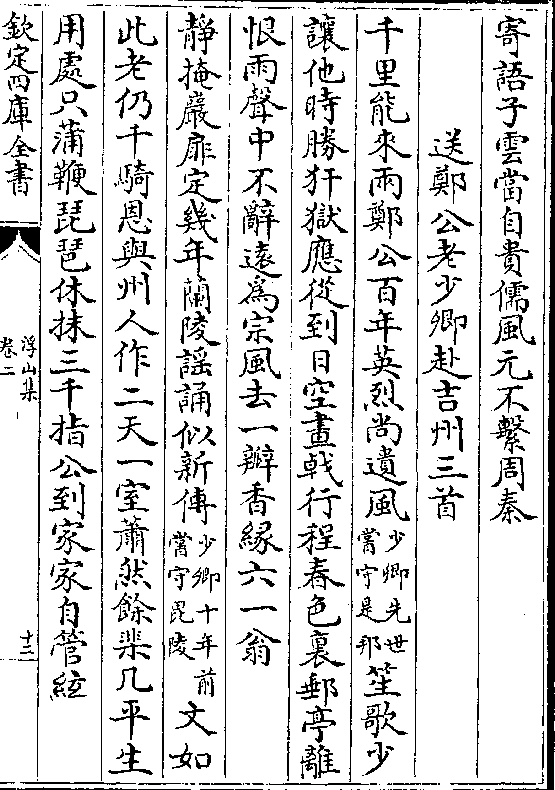 寄語子雲當自貴儒風元不繫周秦
送鄭公老少卿赴吉州三首
千里能來雨鄭公百年英烈尚遺風少卿先世嘗守是邦笙歌少
讓他時勝犴獄應從到日空畫戟行程春色裏郵亭離
恨雨聲中不辭遠為宗風去一瓣香緣六一翁
靜掩巖扉定幾年蘭陵謡誦似新傳少卿十年前嘗守毘陵文如
此老仍千騎恩與州人作二天一室蕭然餘棐几平生
用處只蒲鞭琵琶休抹三千指公到家家自管絃
欽定四庫全書
浮山集
卷二
十三